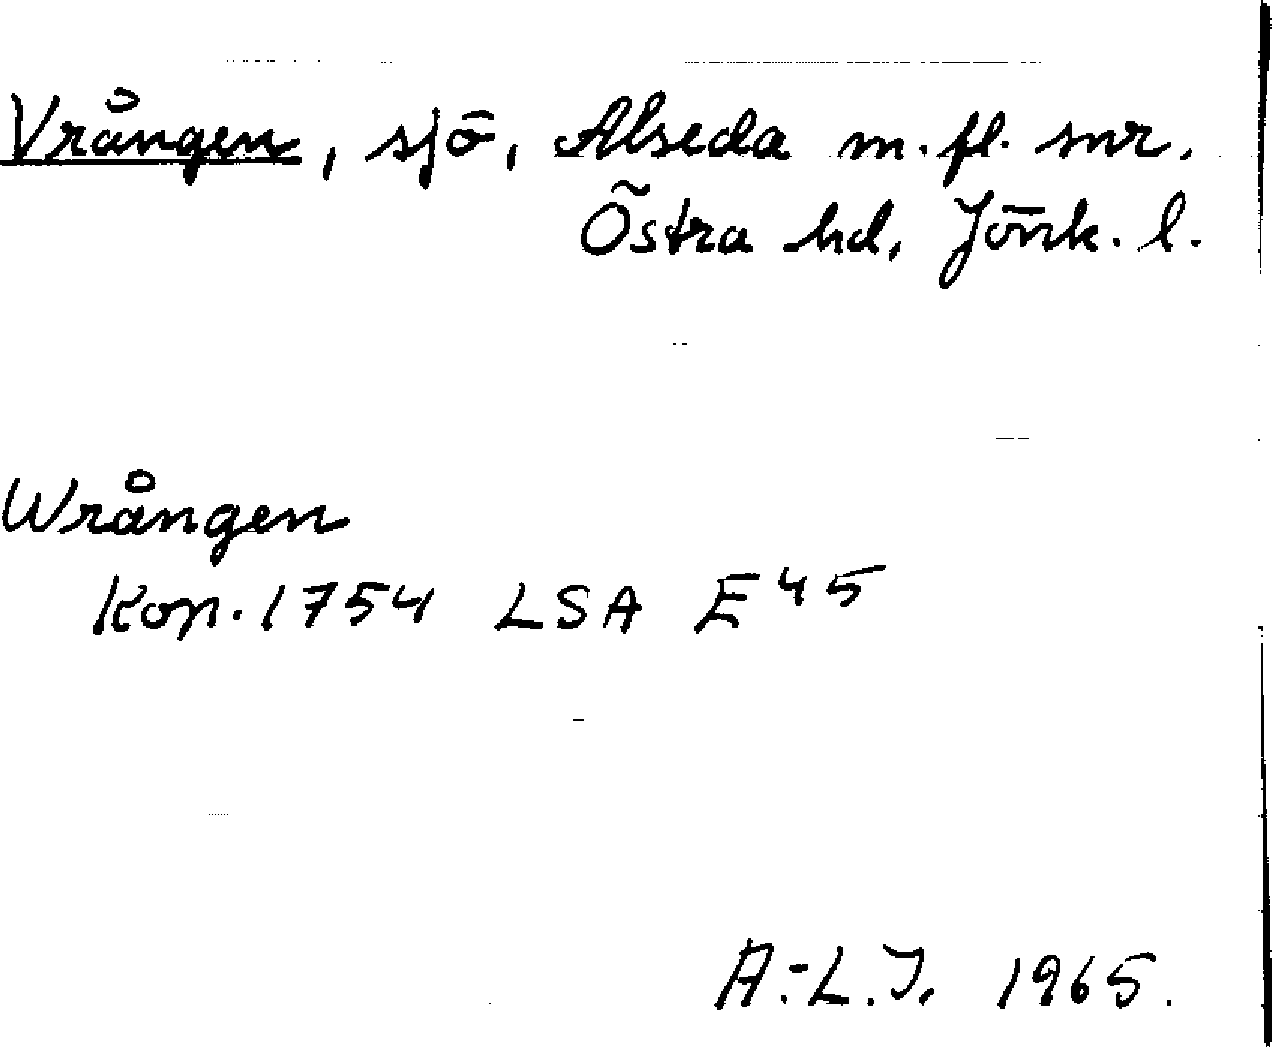 Vrången, sjö, Alseda m. fl. snr.
Östra hd, Jönk. l.
Wrången
Kop. 1754 LSA E 45
A.-L.J. 1965.